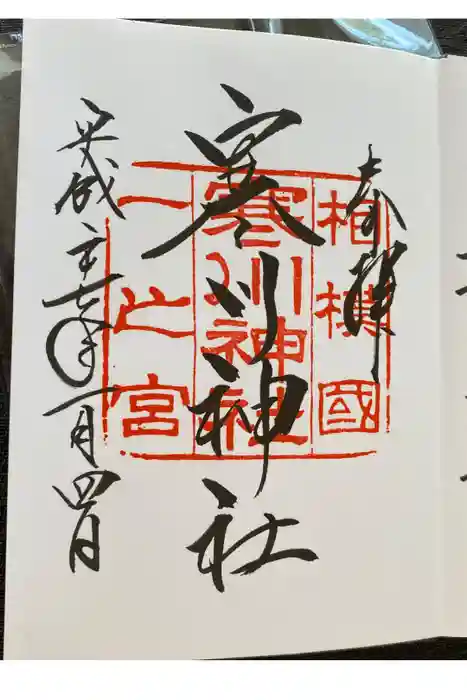 奉拝
相模國
寒川神社
一之宮
寒川神社
平成二十七年一月四日